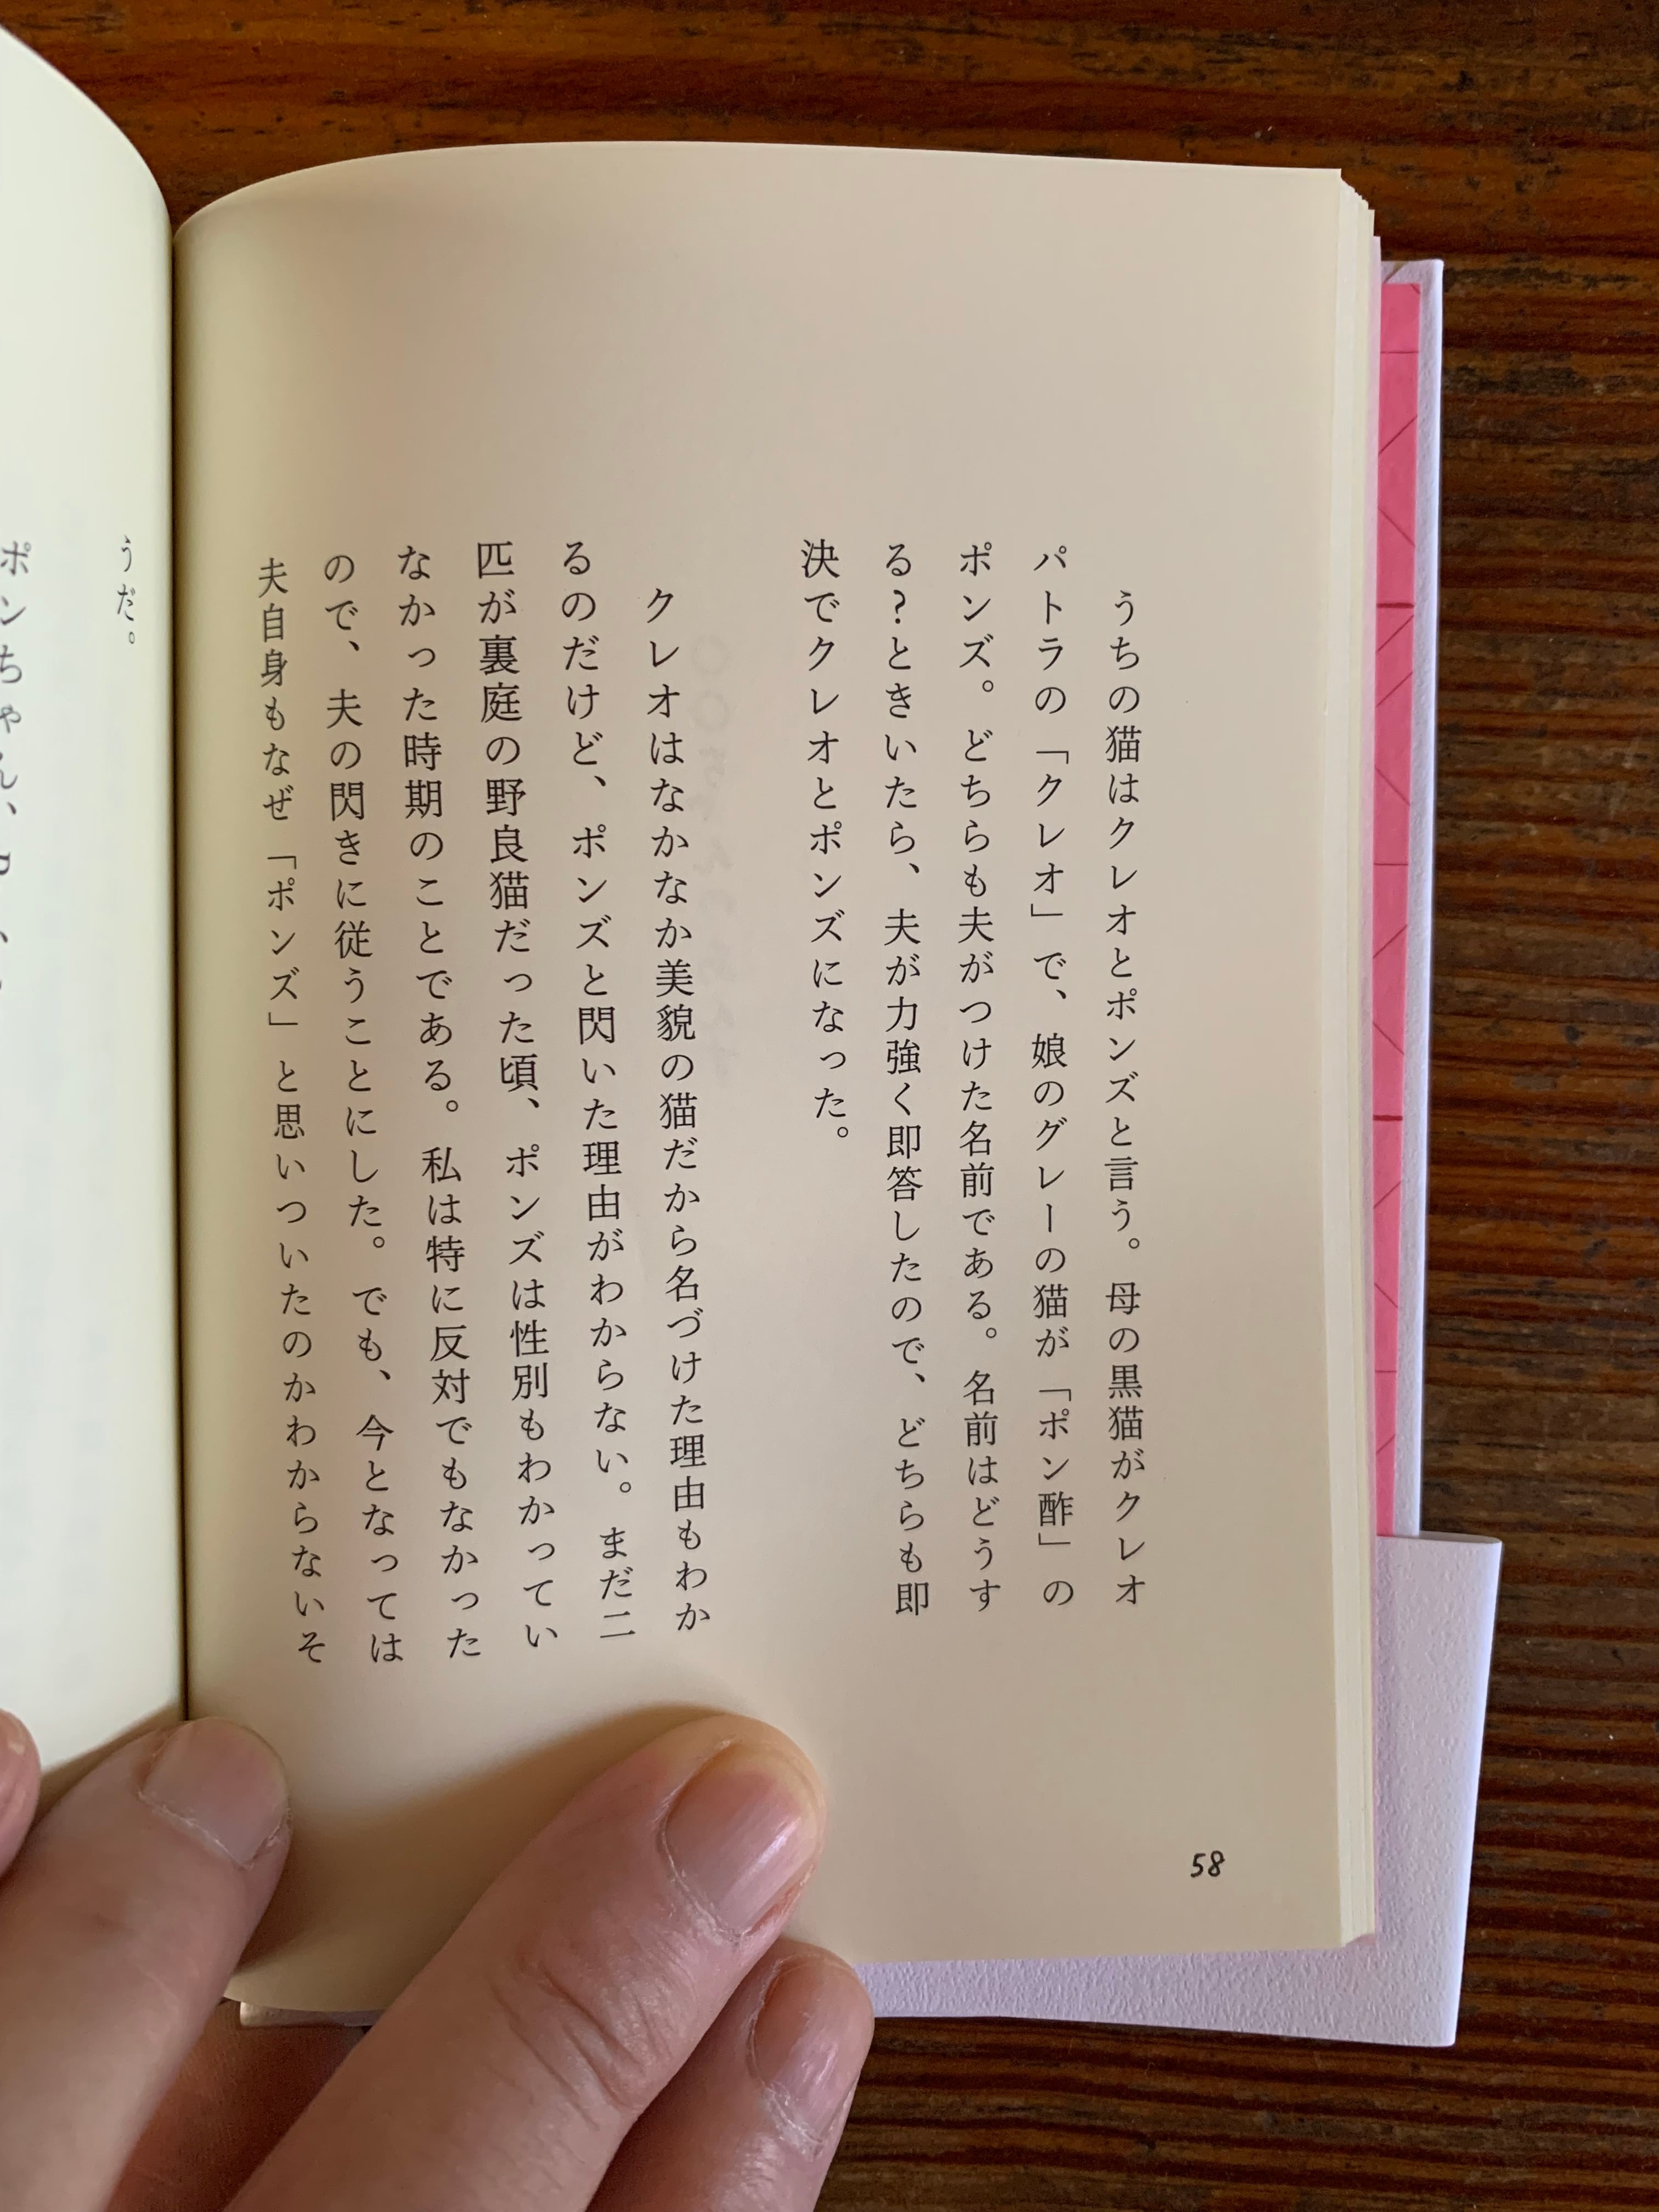 うちの猫はクレオとポンズと言う。母の黒猫がクレオ
パトラの「クレオ」で、娘のグレーの猫が「ポン酢」の
ポンズ。どちらも夫がつけた名前である。名前はどうす
る?ときいたら、夫が力強く即答したので、どちらも即
決でクレオとポンズになった。
クレオはなかなか美貌の猫だから名づけた理由もわか
るのだけど、ポンズと閃いた理由がわからない。まだ二
匹が裏庭の野良猫だった頃、ポンズは性別もわかってい
なかった時期のことである。私は特に反対でもなかった
ので、夫の閃きに従うことにした。でも、今となっては
夫自身もなぜ「ポンズ」と思いついたのかわからないそ
58
うだ。
ポンちゃん、